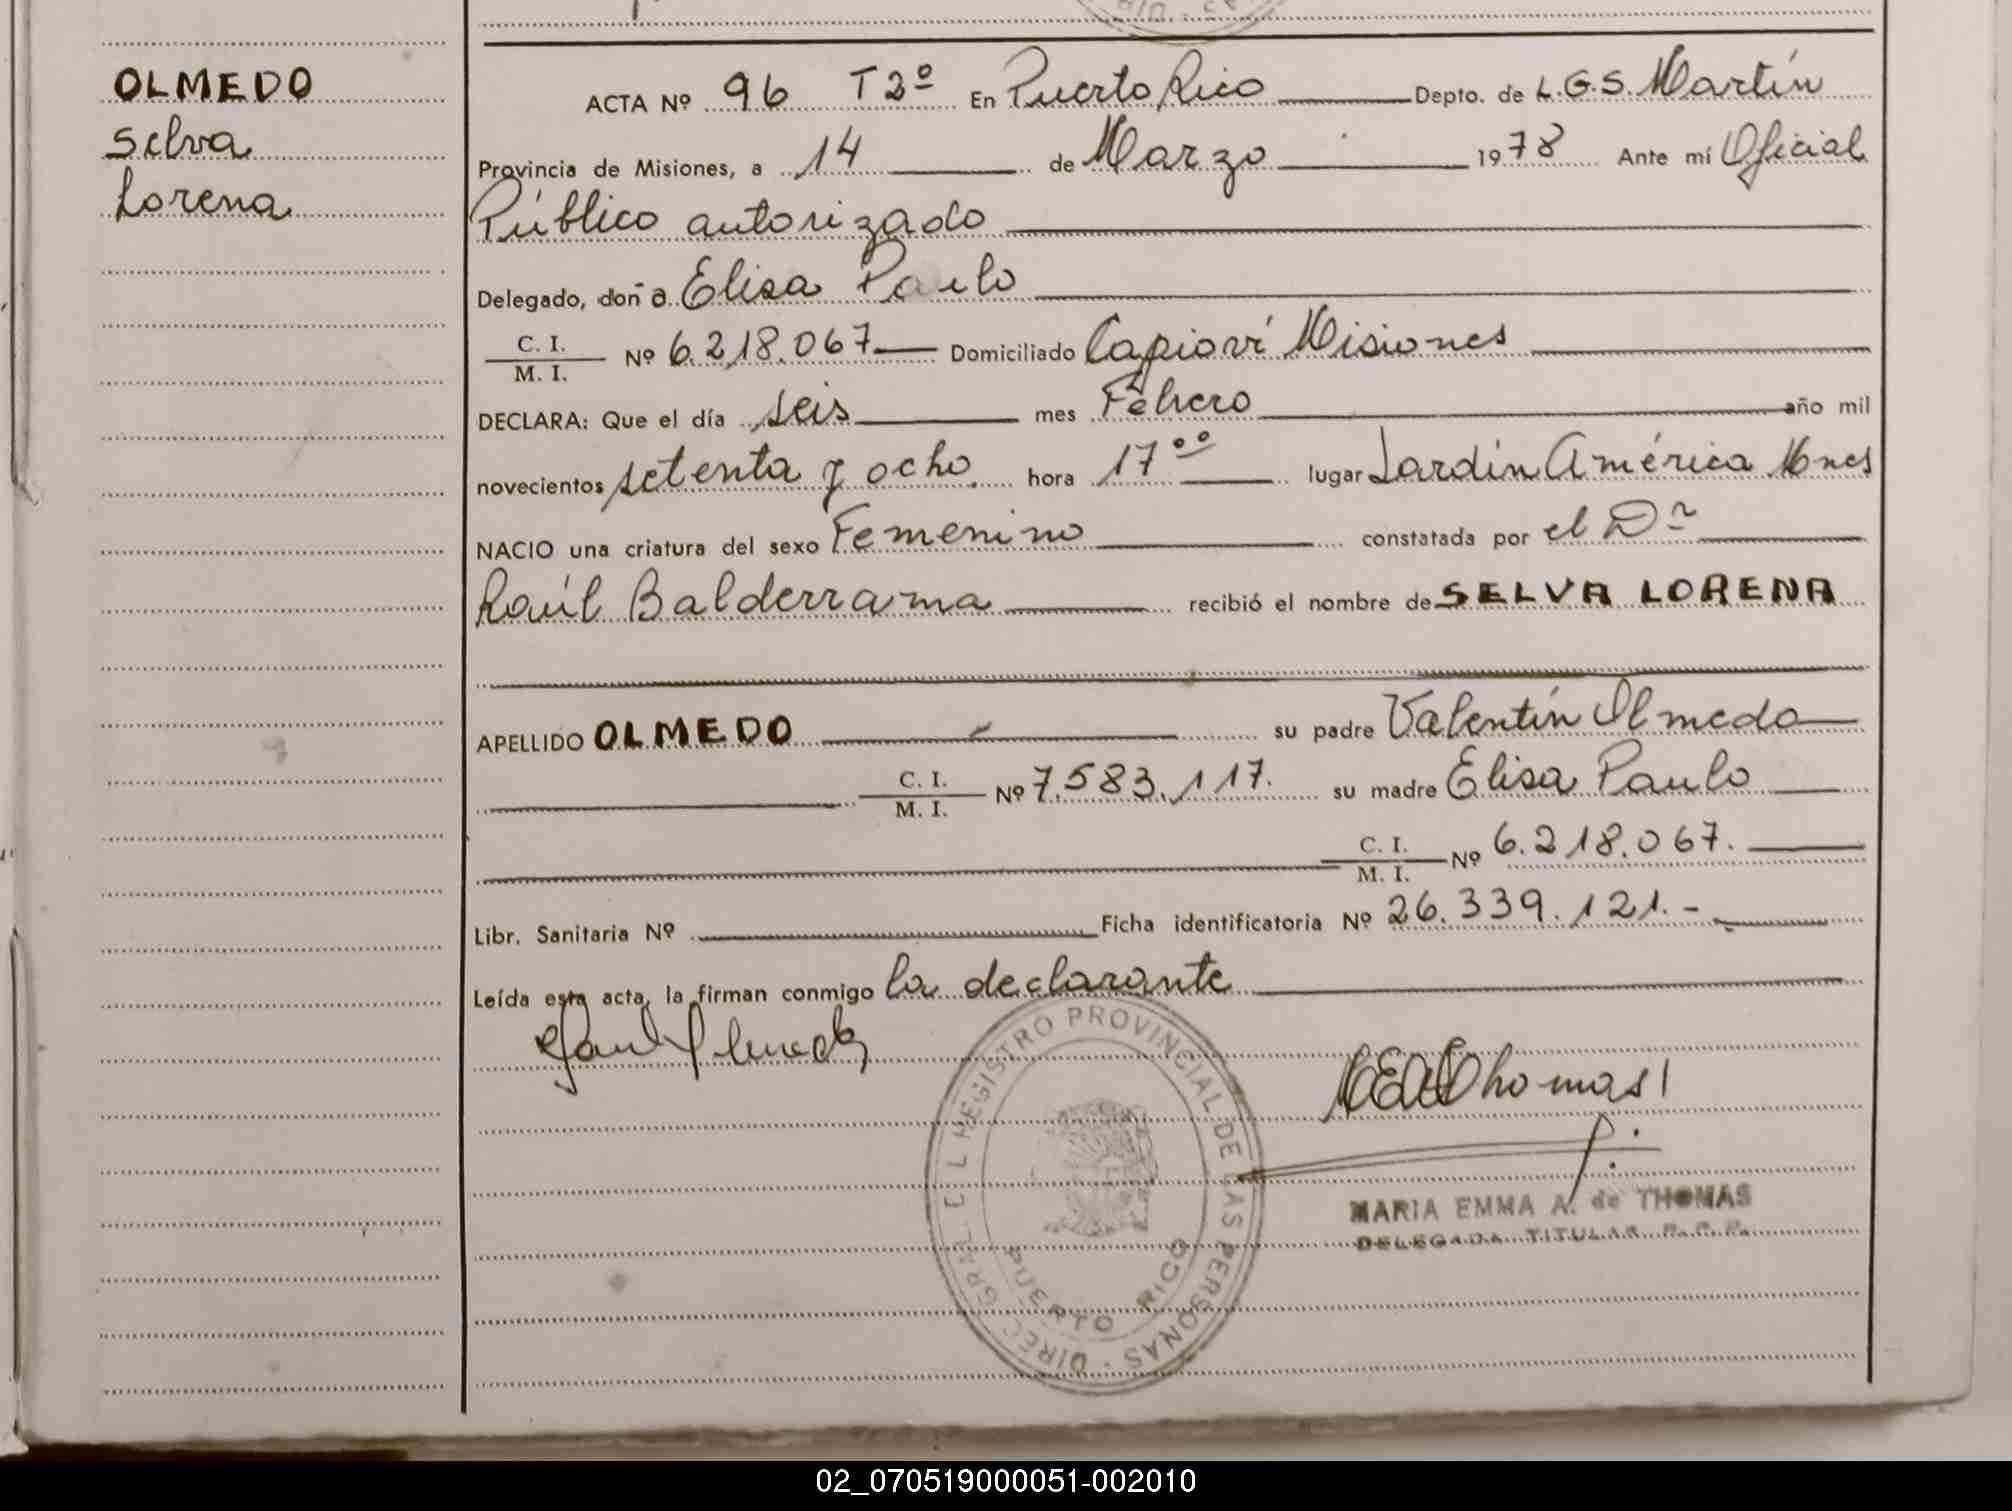 OLMEDO
Selva
Lorena
ACTA Nº 96 T2º En Puerto Rico Depto. de L.G.S. Martín
Provincia de Misiones, a 14 de Marzo 1978 Ante mí Oficial
Público autorizado
Delegado, doña Elisa Paulo
C. I.
M. I. Nº 6.218.067 Domiciliado Capioví Misiones
DECLARA: Que el día seis mes Febrero año mil
novecientos setenta y ocho. hora 17ºº lugar Jardín América Mnes
NACIO una criatura del sexo Femenino constatada por el Dr
Raúl Balderrama recibió el nombre de SELVA LORENA
APELLIDO OLMEDO su padre Valentín Olmedo
C. I.
M. I. Nº 7.583.117. su madre Elisa Paulo
C. I.
M. I. Nº 6.218.067.
Libr. Sanitaria Nº Ficha identificatoria Nº 26.339.121.-
Leída esta acta, la firman conmigo la declarante
DIREC. GRAL. DEL REGISTRO PROVINCIAL DE LAS PERSONAS
PUERTO RICO
Thomas
MARIA EMMA A. de THOMAS
DELEGADA TITULAR R.P.P.
02_070519000051-002010